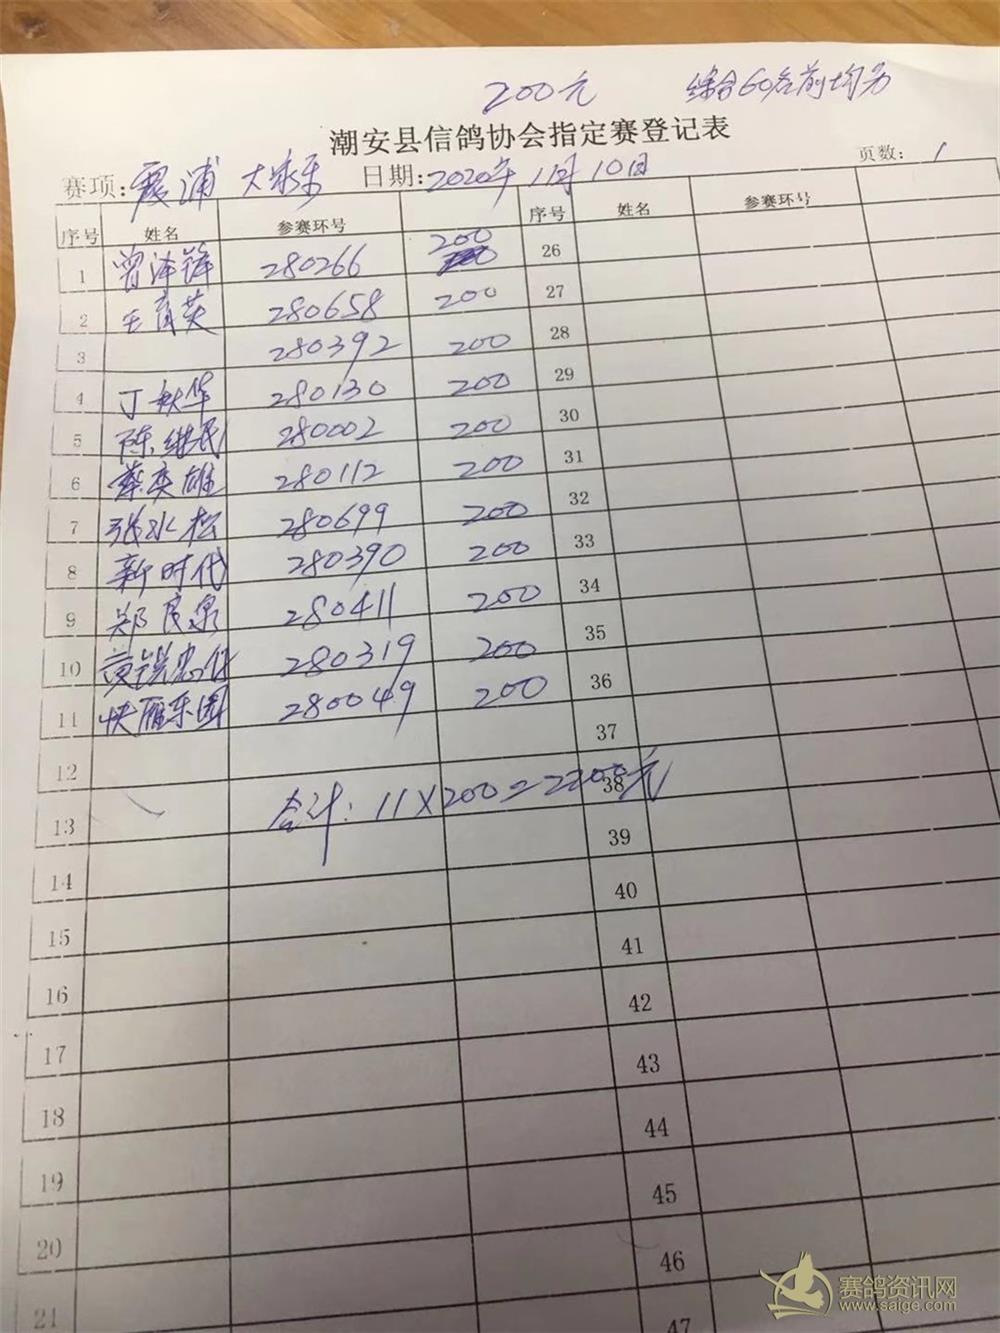 200元 综合60名前均分
潮安县信鸽协会指定赛登记表
赛项: 霞浦 大家乐 日期: 2020年11月10日 页数: 1
序号 姓名 参赛环号 序号 姓名 参赛环号
1 曾泽锋 280266 200 26
2 王育英 280658 200 27
3 280392 200 28
4 丁秋华 280130 200 29
5 陈继民 280002 200 30
6 蔡奕雄 280112 200 31
7 张水松 280699 200 32
8 新时代 280390 200 33
9 郑良泉 280411 200 34
10 黄锐忠 280319 200 35
11 快雁乐园 280049 200 36
12 37
13 合计: 11×200=2200元 38
14 39
15 40
16 41
17 42
18 43
19 44
20 45
21 46
47
赛鸽资讯网
www.saige.com